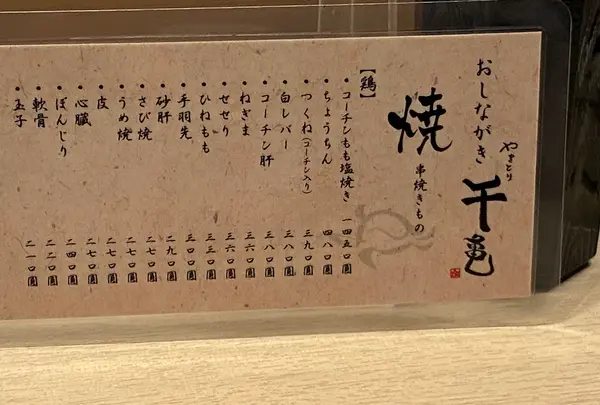 おしながき
やきとり
千亀
焼
串焼きもの
【鶏】
・コーチンもも塩焼き 一四五〇圓
・ちょうちん 四八〇圓
・つくね(コーチン入り) 三九〇圓
・白レバー 三八〇圓
・コーチン肝 三八〇圓
・ねぎま 三六〇圓
・せせり 三六〇圓
・ひねもも 三三〇圓
・手羽先
・砂肝 二九〇圓
・さび焼 二七〇圓
・うめ焼 二七〇圓
・皮 二七〇圓
・心臓 二七〇圓
・ぼんじり 二四〇圓
・軟骨 二二〇圓
・玉子 二一〇圓